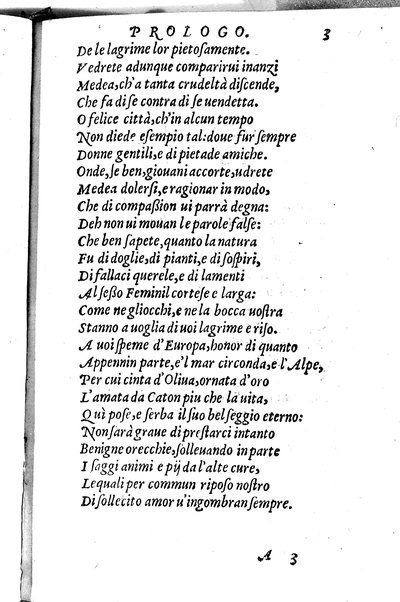 PROLOGO. 3
De le lagrime lor pietoſamente.
Vedrete adunque comparirui inanzi
Medea, ch'a tanta crudeltà diſcende,
Che fa di ſe contra di ſe uendetta.
O felice città, ch'in alcun tempo
Non diede eſempio tal: doue fur ſempre
Donne gentili, e di pietade amiche.
Onde, ſe ben, giouani accorte, udrete
Medea dolerſi, e ragionar in modo,
Che di compaſſion ui parrà degna:
Deh non ui mouan le parole falſe:
Che ben ſapete, quanto la natura
Fu di doglie, di pianti, e di ſoſpiri,
Di fallaci querele, e di lamenti
Al ſeſſo Feminil corteſe e larga:
Come ne gliocchi, e ne la bocca uoſtra
Stanno a uoglia di uoi lagrime e riſo.
A uoi ſpeme d'Europa, honor di quanto
Appennin parte, e'l mar circonda, e l'Alpe,
Per cui cinta d'Oliua, ornata d'oro
L'amata da Caton piu che la uita,
Quì poſe, e ſerba il ſuo bel ſeggio eterno:
Non ſarà graue di preſtarci intanto
Benigne orecchie, ſolleuando in parte
I ſaggi animi e pij da l'alte cure,
Le quali per commun ripoſo noſtro
Di ſollecito amor u'ingombran ſempre.
A 3